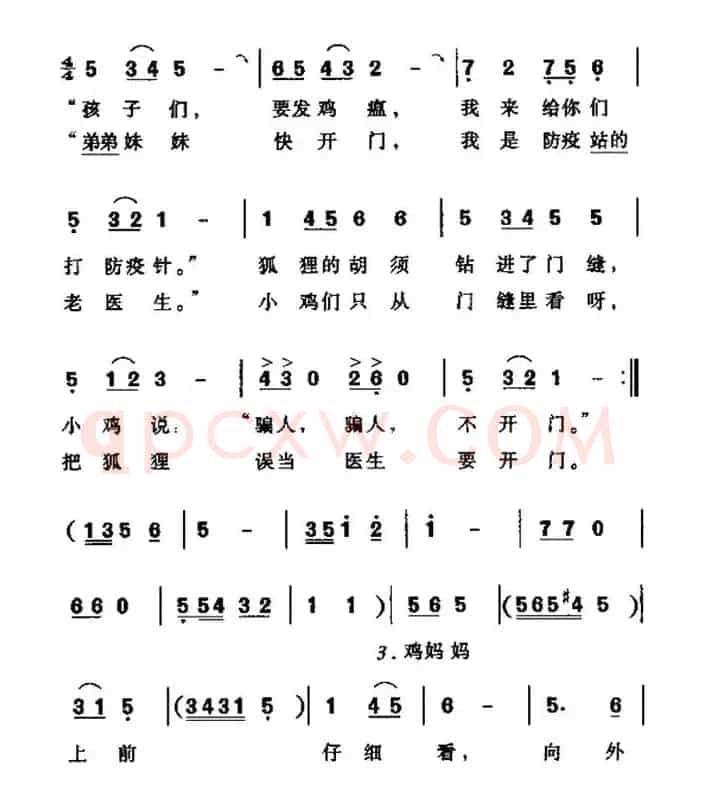 4/4 5 3 4 5 - | 6 5 4 3 2 - | 7 2 7 5 6 |
“孩子们， 要发鸡瘟， 我来给你们
“弟弟妹妹 快开门， 我是防疫站的
5 3 2 1 - | 1 4 5 6 6 | 5 3 4 5 5 |
打防疫针。” 狐狸的胡须 钻进了门缝，
老医生。” 小鸡们只从 门缝里看呀，
5 1 2 3 - | 4 3 0 2 6 0 | 5 3 2 1 - :||
小鸡说： “骗人， 骗人， 不开门。”
把狐狸 误当医生 要开门。
qpcxw.COM
( 1 3 5 6 | 5 - | 3 5 i 2 | i - | 7 7 0
6 6 0 | 5 5 4 3 2 | 1 1 ) | 5 6 5 | ( 5 6 5 #4 5 ) |
3. 鸡妈妈
3 1 5 | ( 3 4 3 1 5 ) | 1 4 5 | 6 - | 5. 6 |
上前 仔细看， 向外